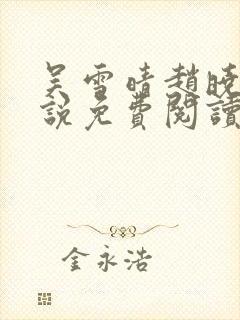 吴雪晴趙曉
說免費閱讀
金永浩